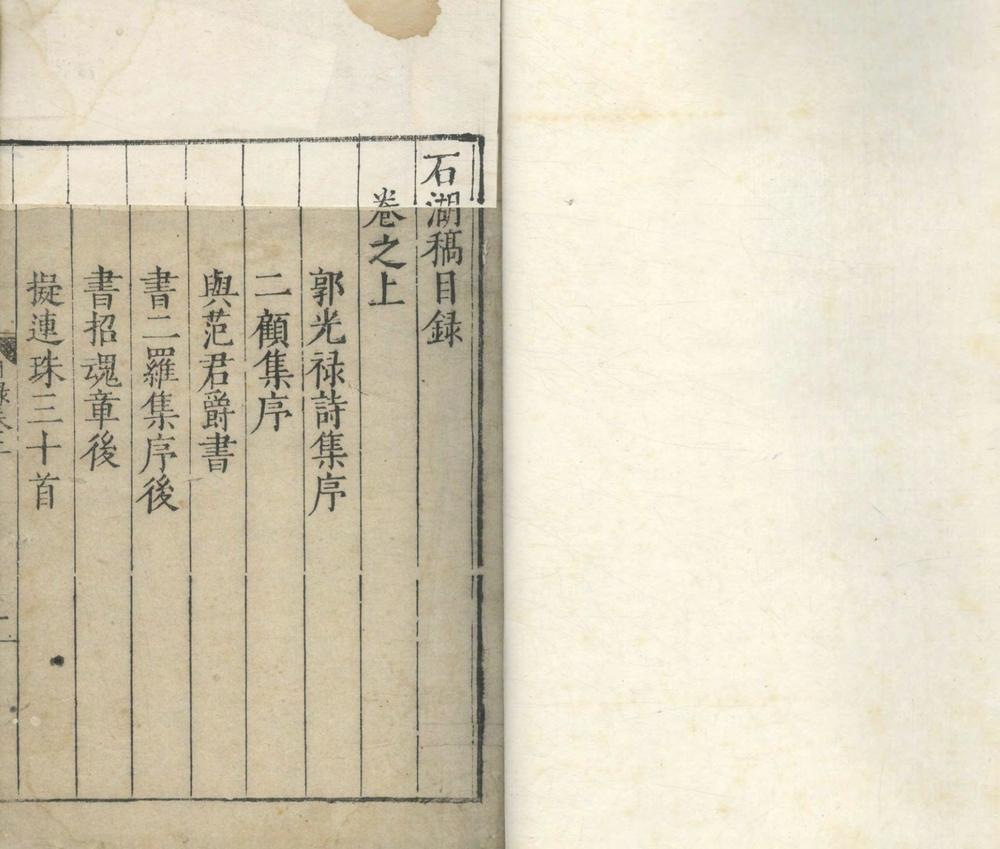 石湖稿目録
卷之上
郭光禄詩集序
二顧集序
與范君爵書
書二羅集序後
書招魂章後
擬連珠三十首